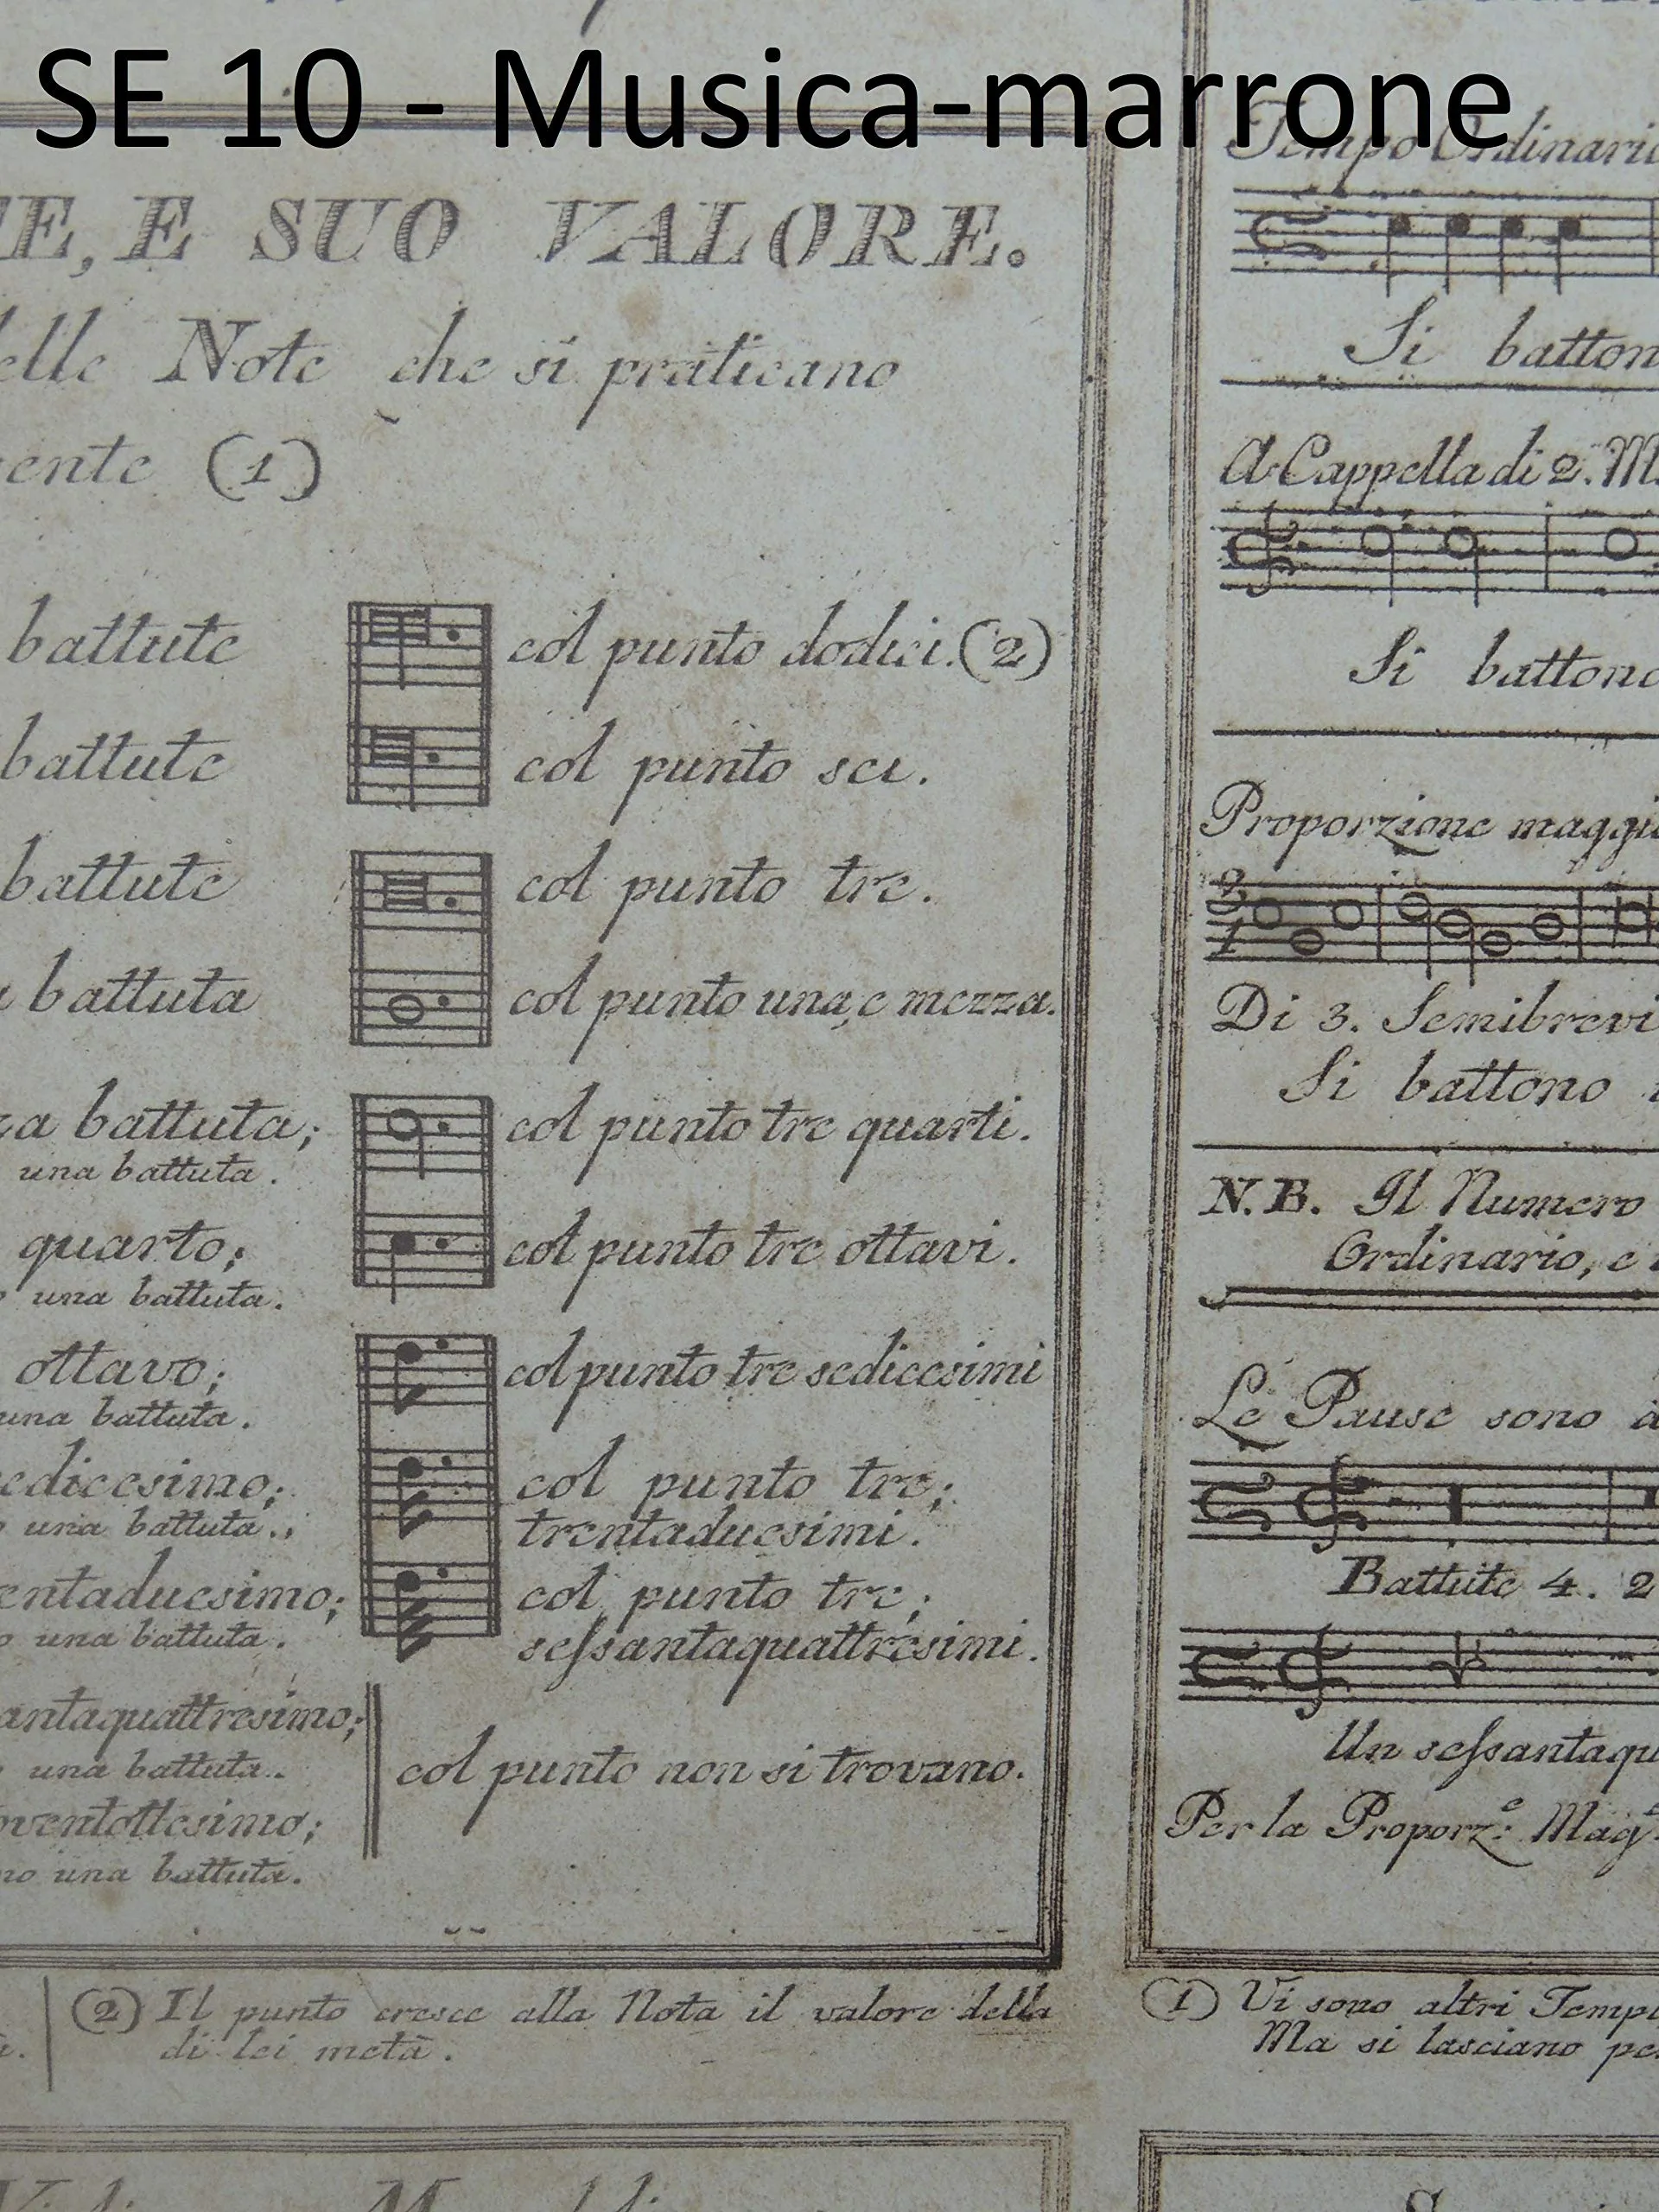 SE 10 - Musica-marrone
E, E SUO VALORE.
elle Note che si praticano
ente (1)
battute
col punto dodici. (2)
battute
col punto sei.
battute
col punto tre.
battuta
col punto una, e mezza.
za battuta;
una battuta.
col punto tre quarti.
quarto;
una battuta.
col punto tre ottavi.
ottavo;
una battuta.
col punto tre sedicesimi
edicesimo;
una battuta.
col punto tre;
trentaduesimi.
entaduesimo;
una battuta.
col punto tre;
seſsantaquattresimi.
antaquattresimo;
una battuta.
col punto non si trovano.
oventottesimo;
no una battuta.
(2) Il punto cresce alla Nota il valore della
di lei metà.
Tempo Ordinario
Si batton
A Cappella di 2. M
Si battono
Proporzione maggio
3
1
Di 3. Semibrevi
Si battono
N.B. Il Numero
Ordinario, e
Le Pause sono
Battute 4. 2
Un seſsantaqu
Per la Proporz.e Mag
(1) Vi sono altri Tempi
Ma si lasciano pe